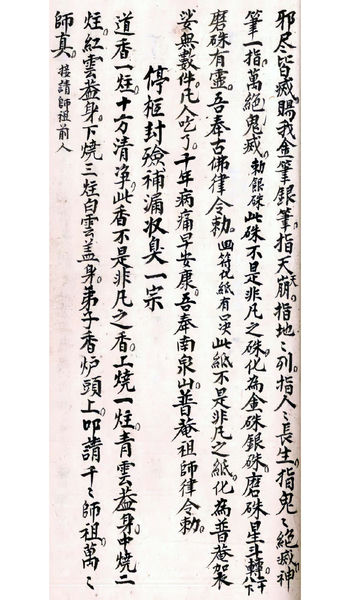 邪尽皆滅賜我金筆銀筆指天天崩指地〻列指人〻長生指鬼〻絕滅神
筆一指萬絕鬼滅勅銀硃此硃不是非凡之硃化為金硃銀硃磨硃星斗轉
磨硃有靈吾奉古佛律令勅四符化紙有灵此紙不是非凡之紙化為普菴袈
娑無數件凡人吃了千年病痛早安康吾奉南泉山普菴祖師律令勅
停柩封殮補漏收臭一宗
道香一炷十方清净此香不是非凡之香上燒一炷青雲蓋身中燒二
炷紅雲蓋身下燒三炷白雲盖身弟子香炉頭上叩請千〻師祖萬〻
師真接請師祖前人